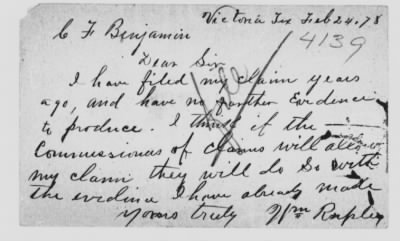 Victoria Tex Feb 24. 78
4139
C F Benjamin
Dear Sir
I have filed my claim years
ago, and have no further Evidence
to produce. I think if the
Commissioners of claims will allow
my claim they will do So with
the evidence I have already made
Yours truly Wm Rupley